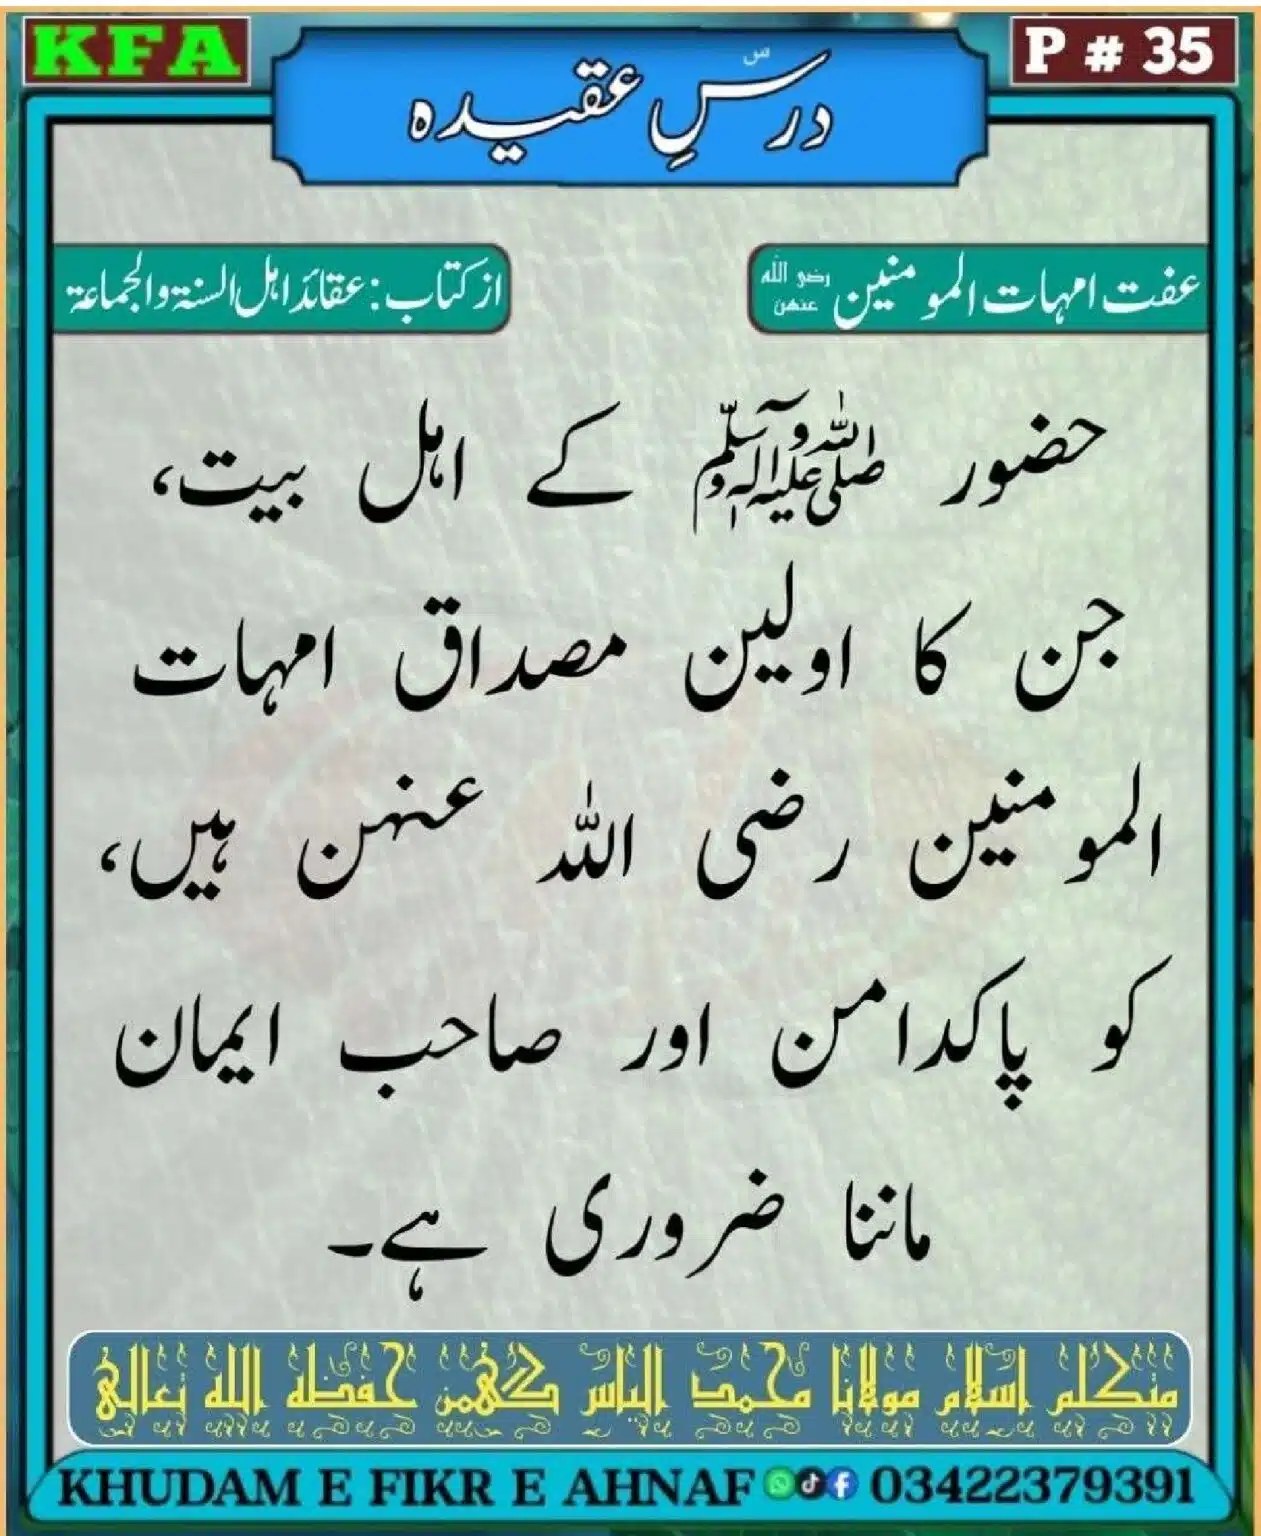 KFA
P # 35
درسِ عقیدہ
عفت امہات المومنین رضی اللہ عنھن
از کتاب: عقائد اہل السنۃ والجماعۃ
حضور ﷺ کے اہل بیت،
جن کا اولین مصداق امہات
المومنین رضی اللہ عنہن ہیں،
کو پاکدامن اور صاحب ایمان
ماننا ضروری ہے۔
متکلم اسلام مولانا محمد الیاس گھمن حفظہ اللہ تعالیٰ
KHUDAM E FIKR E AHNAF 03422379391